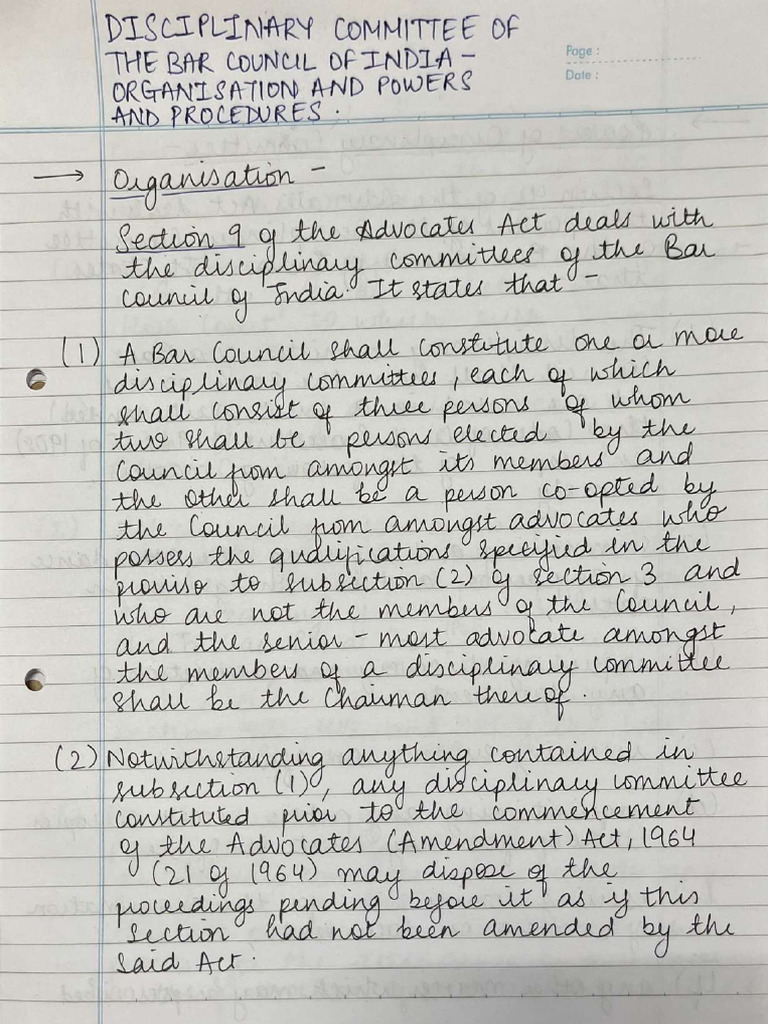 DISCIPLINARY COMMITTEE OF
THE BAR COUNCIL OF INDIA -
ORGANISATION AND POWERS
AND PROCEDURES.
Page :
Date :
→ Organisation -
Section 9 of the Advocates Act deals with
the disciplinary committees of the Bar
Council of India. It states that -
(1) A Bar Council shall constitute one or more
disciplinary committees, each of which
shall consist of three persons of whom
two shall be persons elected by the
Council from amongst its members and
the other shall be a person co-opted by
the Council from amongst advocates who
possess the qualifications specified in the
proviso to subsection (2) of section 3 and
who are not the members of the Council,
and the senior-most advocate amongst
the members of a disciplinary committee
shall be the Chairman thereof.
(2) Notwithstanding anything contained in
subsection (1), any disciplinary committee
constituted prior to the commencement
of the Advocates (Amendment) Act, 1964
(21 of 1964) may dispose of the
proceedings pending before it as if this
section had not been amended by the
said Act.